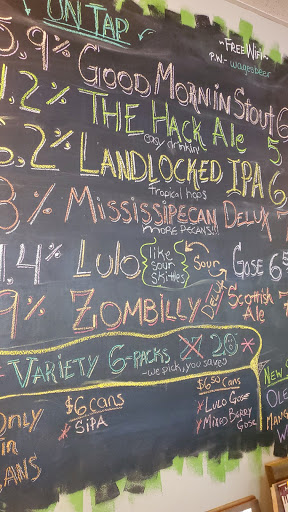 ON TAP
FREE WiFi
P.W - wagesbeer
5.9% GOOD MORNIN STOUT 6
.2% THE HACK ALE 5
easy drinkin!
6.2% LANDLOCKED IPA 6
Tropical hops
8% MISSISSIPECAN DELUX 7
MORE PECANS!!!
.4% LULO {like sour skittles} Sour GOSE 6.5
9% ZOMBILLY DELUX Scottish Ale 7
VARIETY 6-PACKS X 20 *
-we pick, you save!
only in CANS
$6 cans
x SIPA
$6.50 Cans
x LULO GOSE
x MIXED BERRY GOSE
NEW
OLE